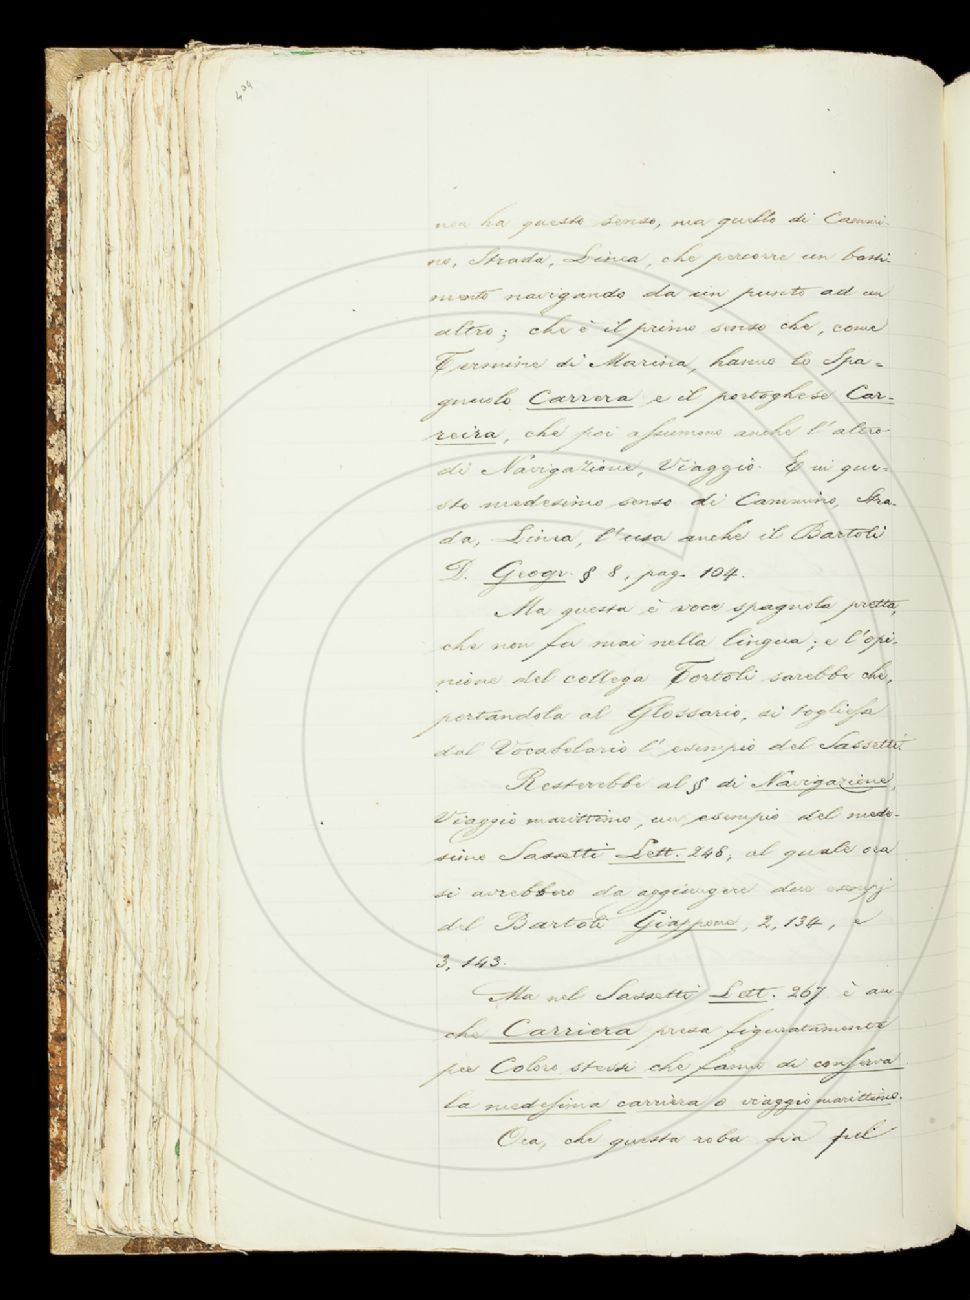 494
non ha questo senso, ma quello di Cammi-
no, Strada, Linea, che percorre un basti-
mento navigando da un punto ad un
altro; che è il primo senso che, come
Termine di Marina, hanno lo Spa-
gnuolo Carrera e il portoghese Car-
reira, che poi assumono anche l'altro
di Navigazione, Viaggio. E in que-
sto medesimo senso di Cammino, Stra-
da, Linea, l'usa anche il Bartoli
D. Geogr. § 8, pag. 104.
Ma questa è voce spagnola pretta,
che non fu mai nella lingua; e l'opi-
nione del collega Tortoli sarebbe che,
portandola al Glossario, si togliesse
dal Vocabolario l'esempio del Sassetti.
Resterebbe al § di Navigazione,
Viaggio marittimo, un esempio del mede-
simo Sassetti Lett. 248, al quale ora
si avrebbero da aggiungere due esempj
del Bartoli Giappone, 2, 134, e
3, 143.
Ma nel Sassetti Lett. 267 è an-
che Carriera presa figuratamente
per Coloro stessi che fanno di conserva
la medesima carriera o viaggio marittimo.
Ora, che questa roba sia pel